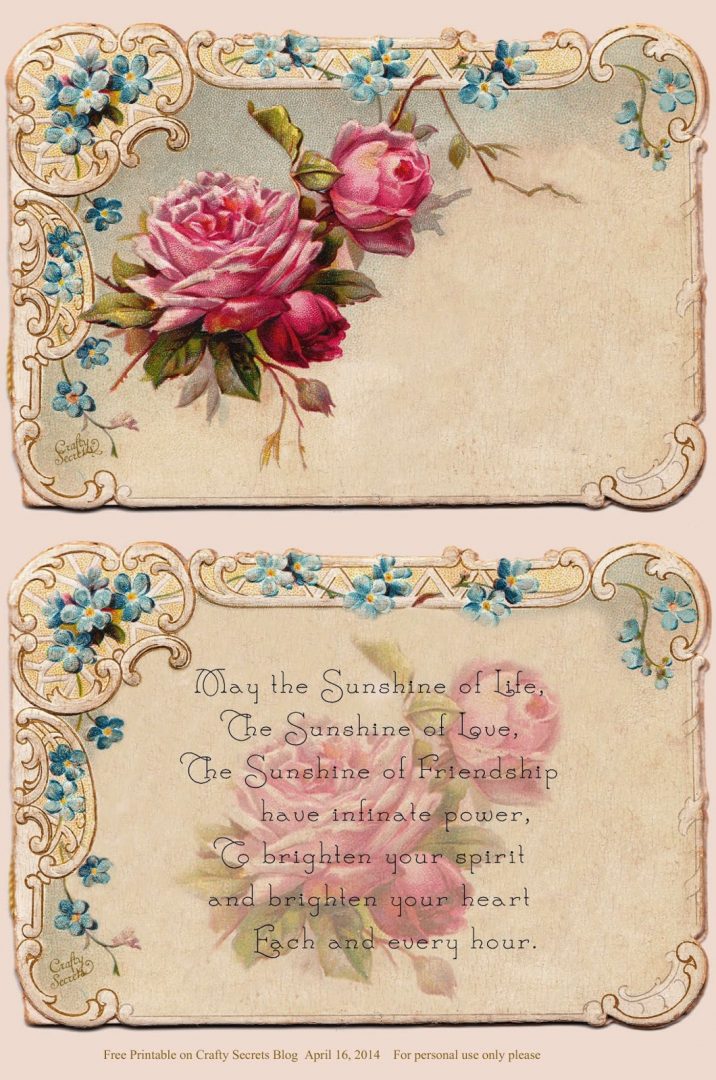 Crafty
Secrets
May the Sunshine of Life,
The Sunshine of Love,
The Sunshine of Friendship
have infinate power,
To brighten your spirit
and brighten your heart
Each and every hour.
Crafty
Secrets
Free Printable on Crafty Secrets Blog April 16, 2014 For personal use only please